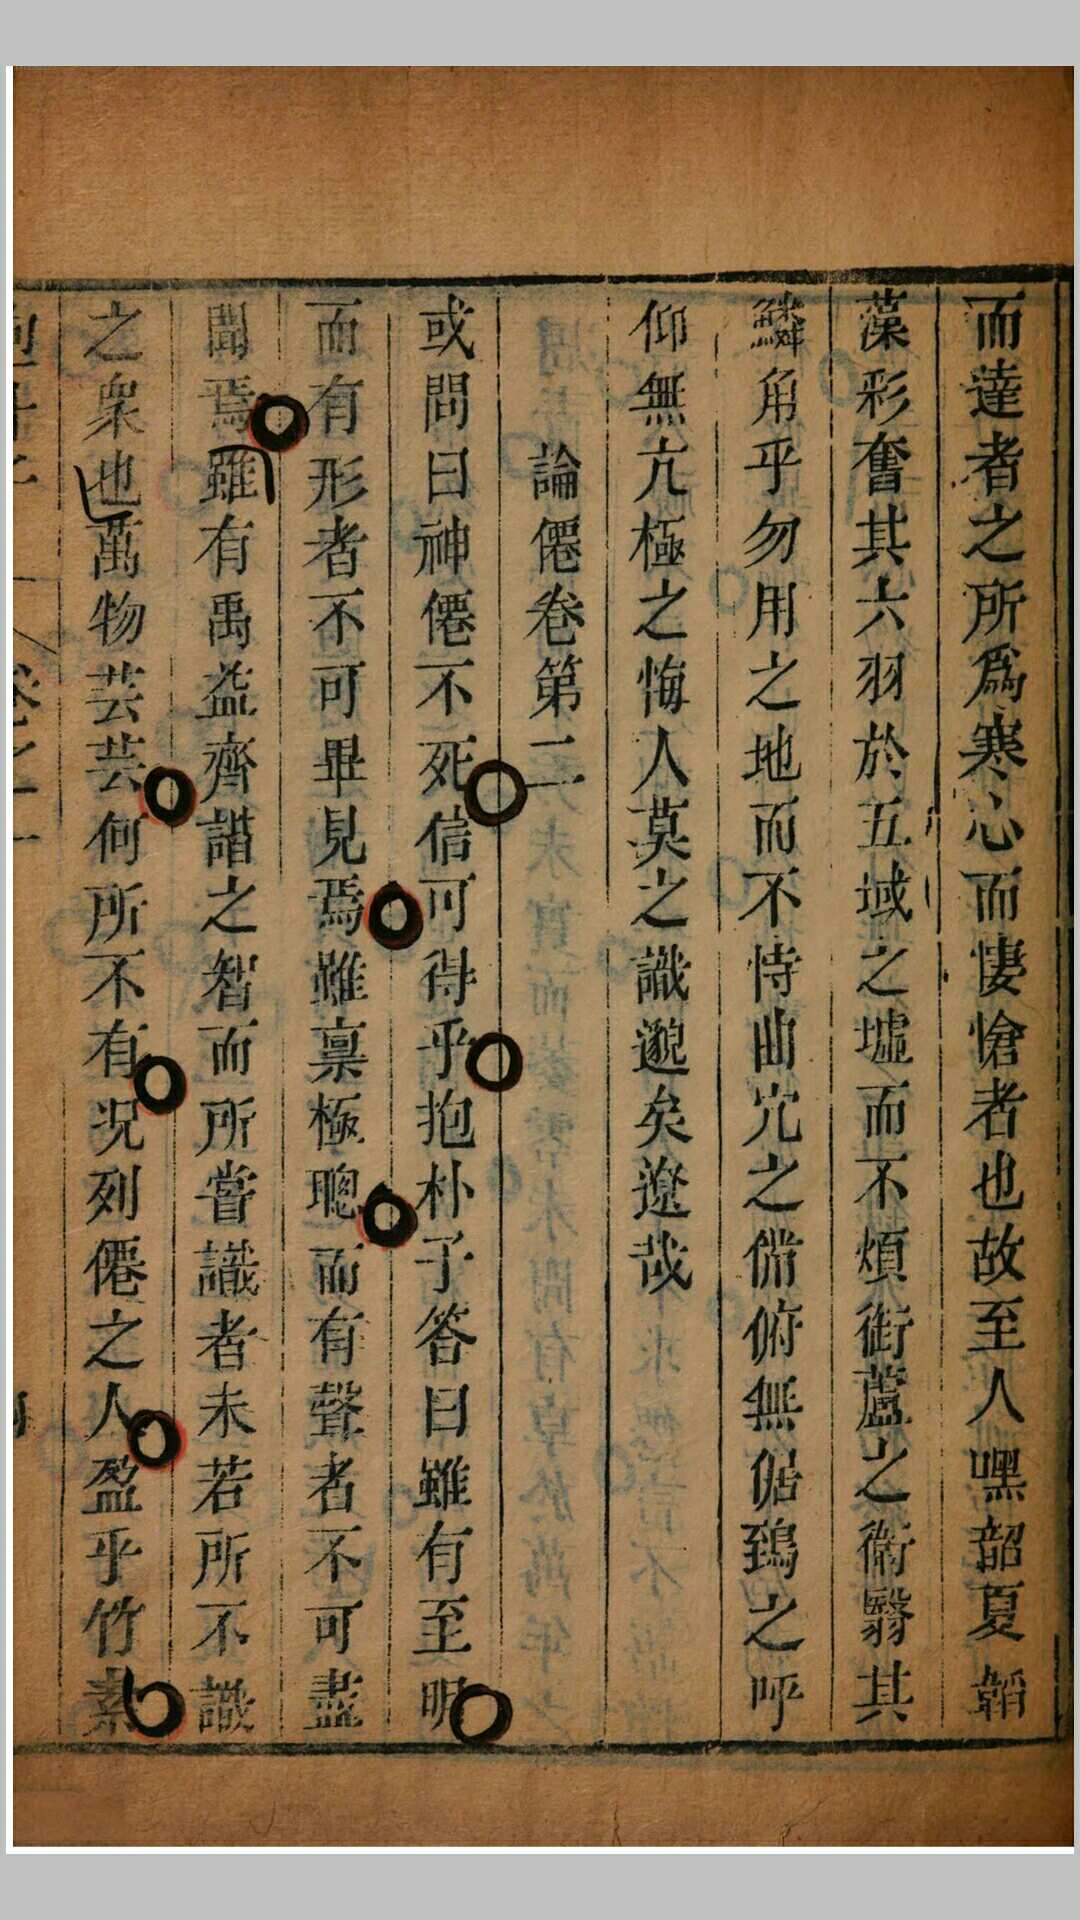 而達者之所爲寒心而悽愴者也故至人嘿韶夏韜
藻彩奮其六羽於五域之墟而不煩銜蘆之衛翳其
鱗角乎勿用之地而不恃曲穴之備俯無倨鵄之呼
仰無亢極之悔人莫之識邈矣遼哉
論僊卷第二
或問曰神僊不死信可得乎抱朴子答曰雖有至明
而有形者不可畢見焉雖稟極聰而有聲者不可盡
聞焉雖有禹益齊諧之智而所嘗識者未若所不識
之衆也萬物芸芸何所不有况列僊之人盈乎竹素